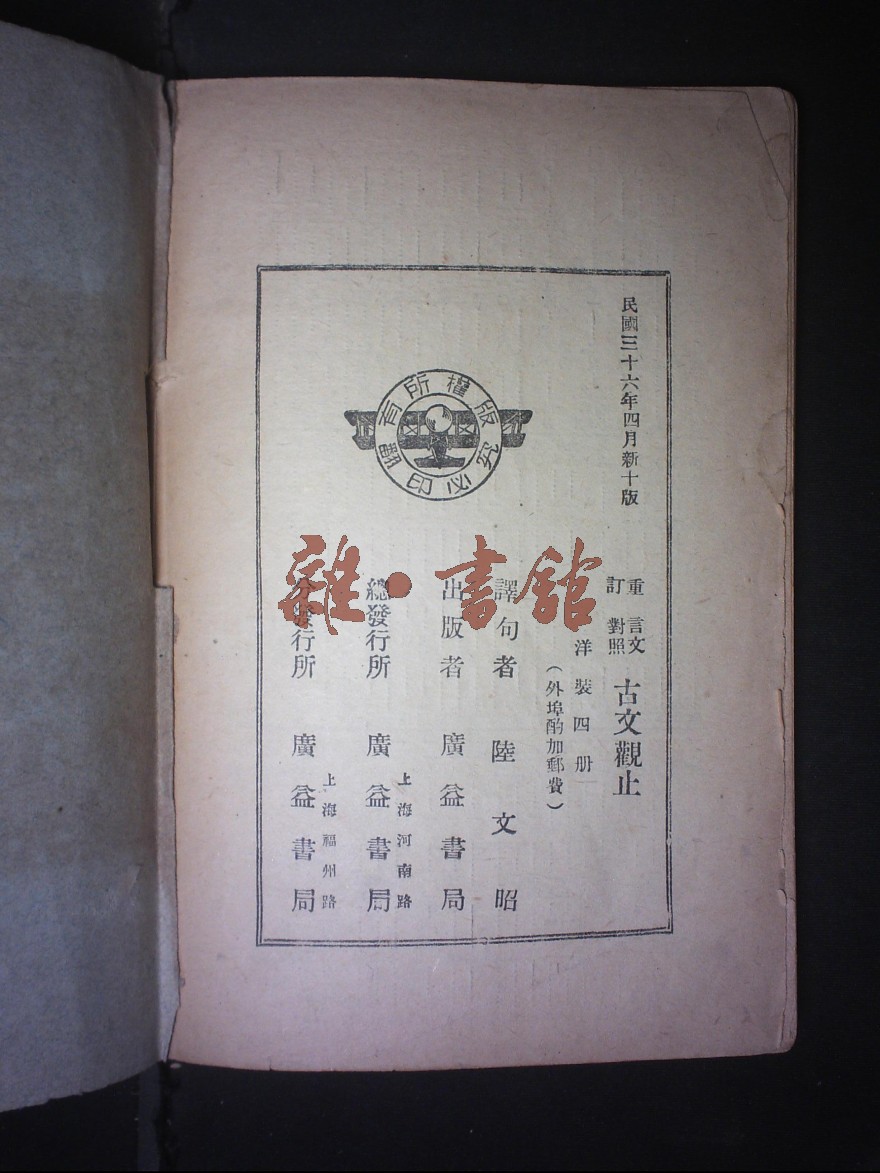 民國三十六年四月新十版
重訂 言文對照 古文觀止
洋裝四册
(外埠酌加郵費)
譯句者 陸文昭
出版者 廣益書局
上海河南路
總發行所 廣益書局
上海福州路
分發行所 廣益書局
版權所有
翻印必究
雜·書館